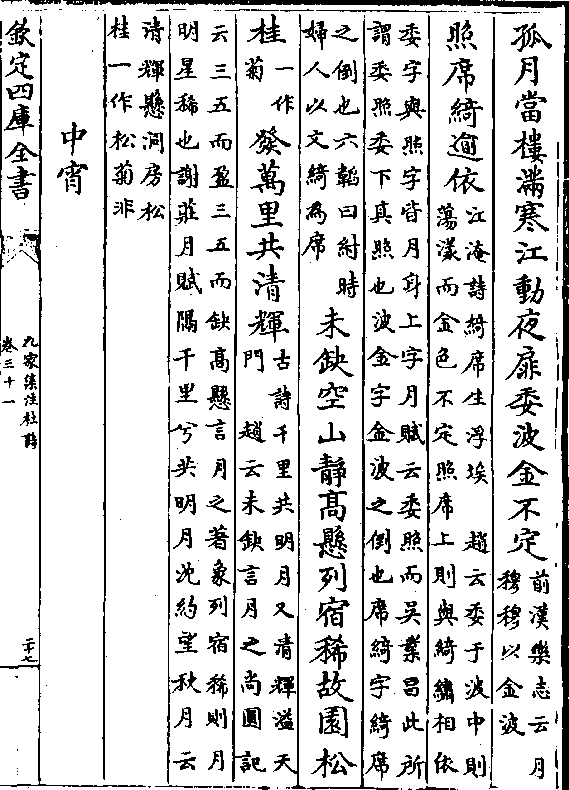 孤月當樓滿寒江動夜扉委波金不定前漢樂志云月穆穆以金波
照席綺逾依江淹詩綺席生浮埃　趙云委于波中則蕩漾而金色不定照席上則與綺繡相依
委字與照字皆月身上字月賦云委照而吳業昌此所謂委照委下其照也波金字金波之倒也席綺字綺席
之倒也六韜曰紂時婦人以文綺為席　未缺空山靜髙懸列宿稀故園松
桂一作菊發萬里共清輝古詩千里共明月又清輝溢天門　趙云未缺言月之尚圓記
云三五而盈三五而缺髙懸言月之著象列宿稀則月明星稀也謝莊月賦隔千里兮共明月沈約望秋月云
清輝懸洞房松桂一作松菊非
中宵
欽定四庫全書
九家集注杜詩
卷三十一
二十七